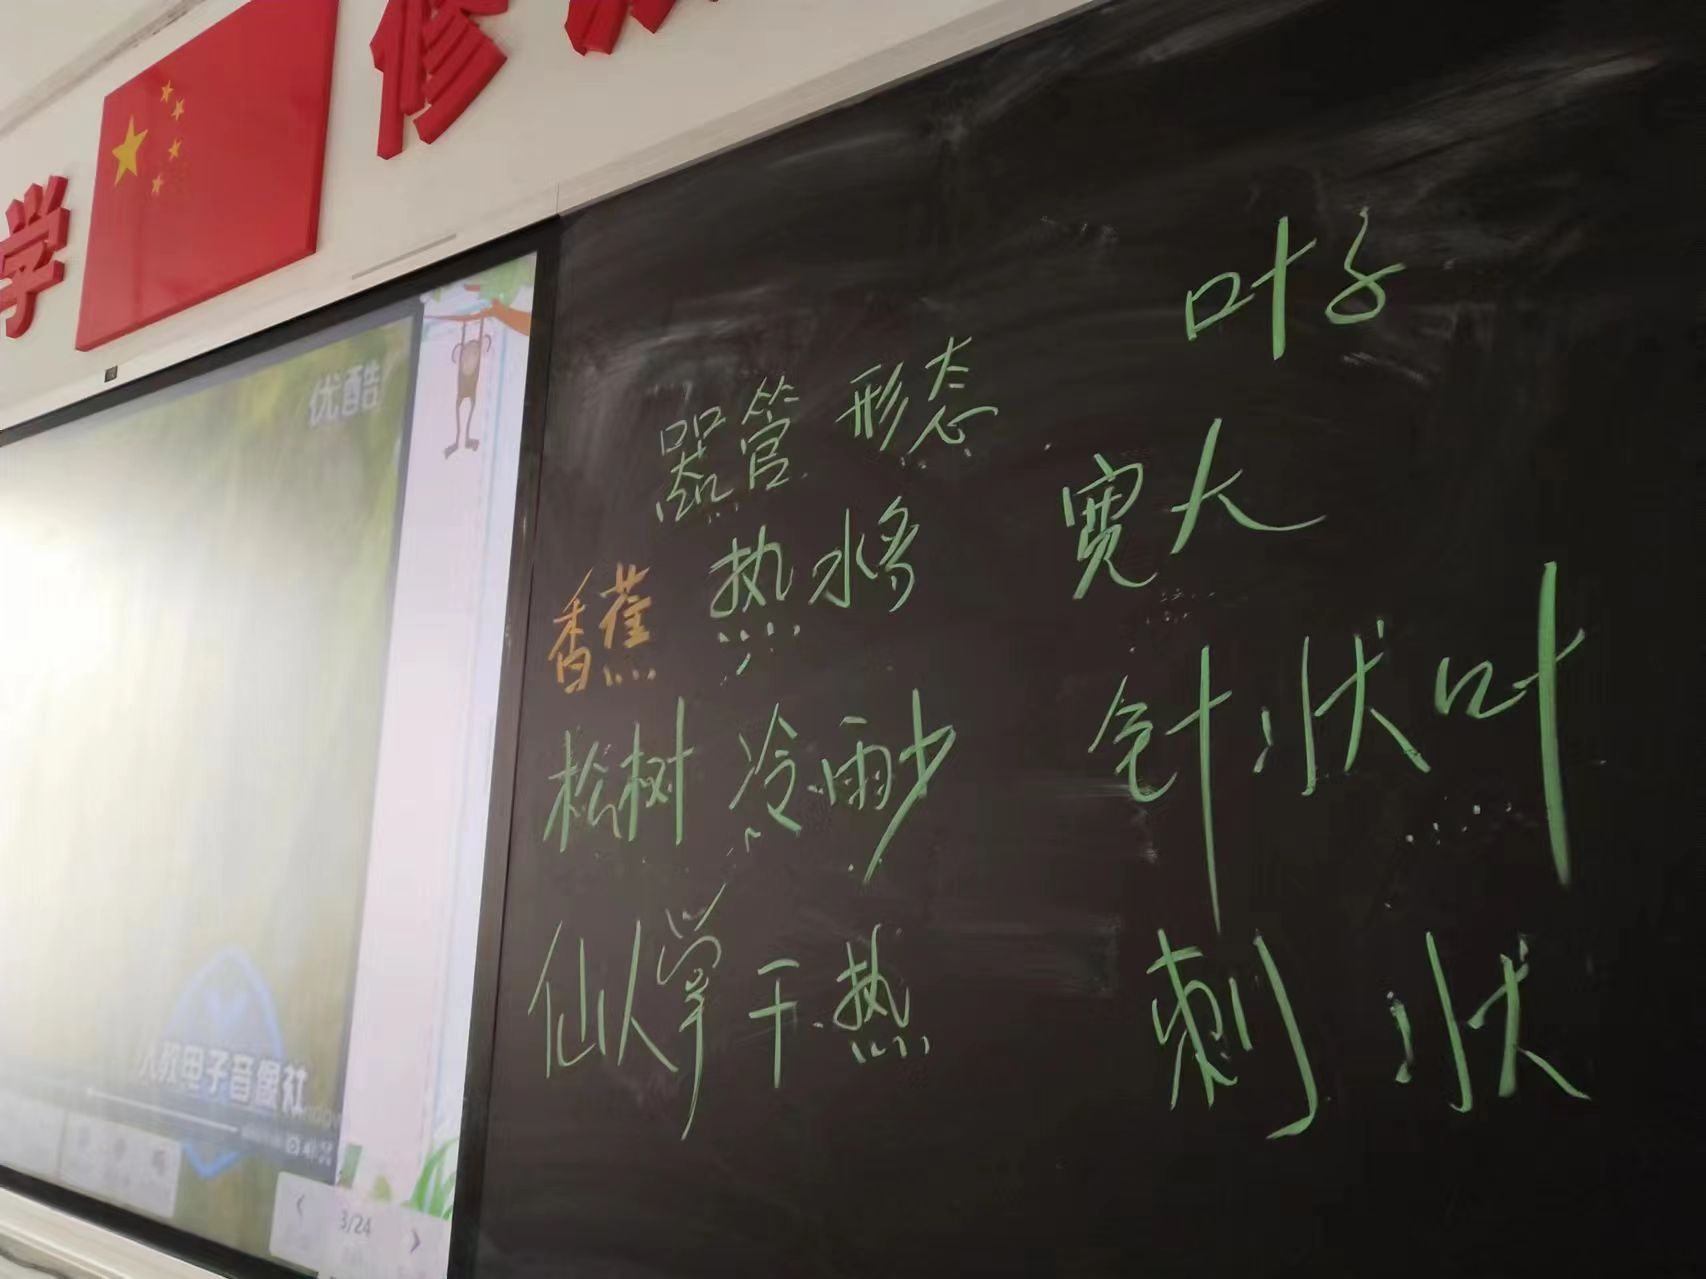 学 修
优酷
人教电子音像社
3/24
叶子
器官 形态
香蕉 热 水多 宽大
松树 冷 雨少 针状叶
仙人掌 干热 刺状